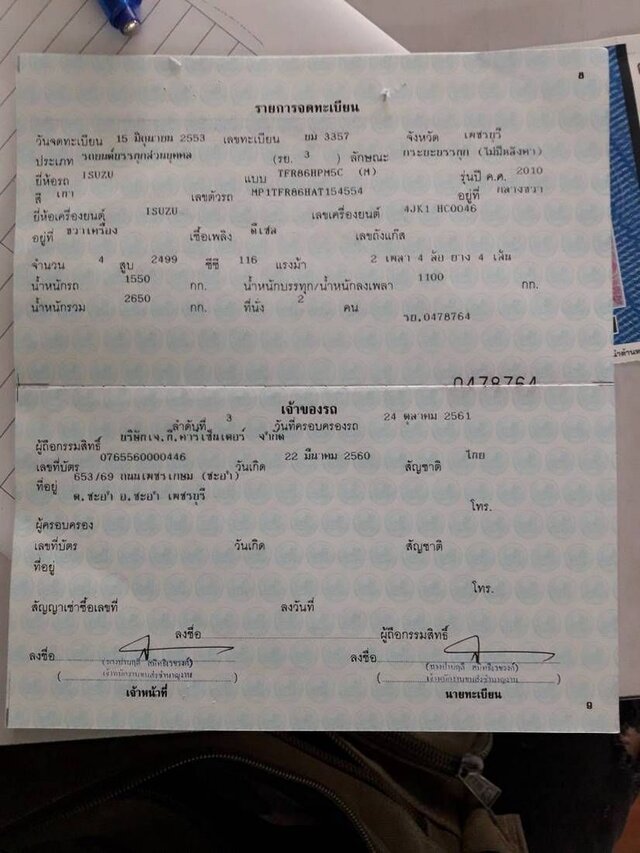 8
รายการจดทะเบียน
วันจดทะเบียน 15 มิถุนายน 2553 เลขทะเบียน ยม 3357 จังหวัด เพชรบุรี
ประเภท รถยนต์บรรทุกส่วนบุคคล (รย. 3 ) ลักษณะ กระบะบรรทุก (ไม่มีหลังคา)
ยี่ห้อรถ ISUZU แบบ TFR86HPM5C (M) รุ่นปี ค.ศ. 2010
สี เทา เลขตัวรถ MP1TFR86HAT154554 อยู่ที่ กลางขวา
ยี่ห้อเครื่องยนต์ ISUZU เลขเครื่องยนต์ 4JK1 HC0046
อยู่ที่ ขวาเครื่อง เชื้อเพลิง ดีเซล เลขถังแก๊ส
จำนวน 4 สูบ 2499 ซีซี 116 แรงม้า 2 เพลา 4 ล้อ ยาง 4 เส้น
น้ำหนักรถ 1550 กก. น้ำหนักบรรทุก/น้ำหนักลงเพลา 1100 กก.
น้ำหนักรวม 2650 กก. ที่นั่ง 2 คน
รย.0478764
0478764
เจ้าของรถ
ลำดับที่ 3 วันที่ครอบครองรถ 24 ตุลาคม 2561
ผู้ถือกรรมสิทธิ์ บริษัทเจ.ที.คาร์เซ็นเตอร์ จำกัด
เลขที่บัตร 0765560000446 วันเกิด 22 มีนาคม 2560 สัญชาติ ไทย
ที่อยู่ 653/69 ถนนเพชรเกษม (ชะอำ)
ต.ชะอำ อ.ชะอำ เพชรบุรี
โทร.
ผู้ครอบครอง
เลขที่บัตร วันเกิด สัญชาติ
ที่อยู่
โทร.
สัญญาเช่าซื้อเลขที่ ลงวันที่
ลงชื่อ ผู้ถือกรรมสิทธิ์
ลงชื่อ ลงชื่อ
เจ้าพนักงานขนส่งชำนาญงาน เจ้าพนักงานขนส่งชำนาญงาน
เจ้าหน้าที่ นายทะเบียน
9